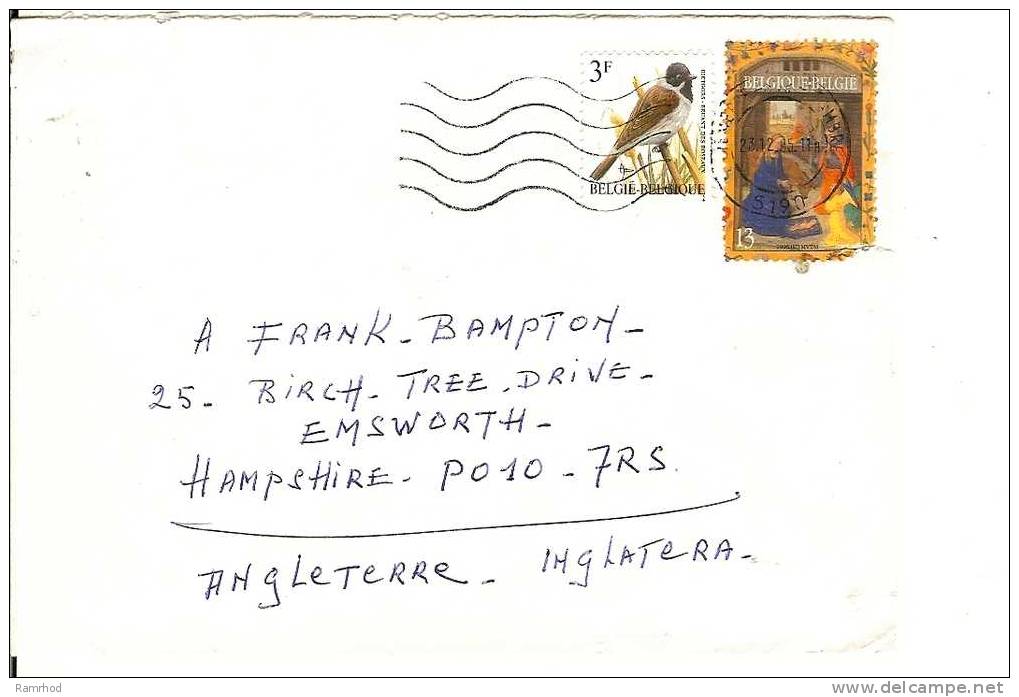 3F
RIETGORS - BRUANT DES ROSEAUX
BELGIË-BELGIQUE
BELGIQUE-BELGIË
23.12.95-11H
5190
13
A FRANK - BAMPTON -
25 - BIRCH - TREE - DRIVE -
EMSWORTH -
HAMPSHIRE - PO10 - 7RS.
ANGLETERRE - INGLATERA -
Ramrhod
www.delcampe.net